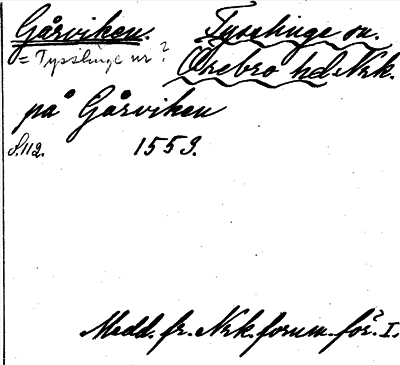 Gårviken. Tysslinge sn.
= Tysslinge nr ? Örebro hd Nrk.
på Gårviken
S. 112. 1553.
Medd. fr. Nrk. fornm. för. I.